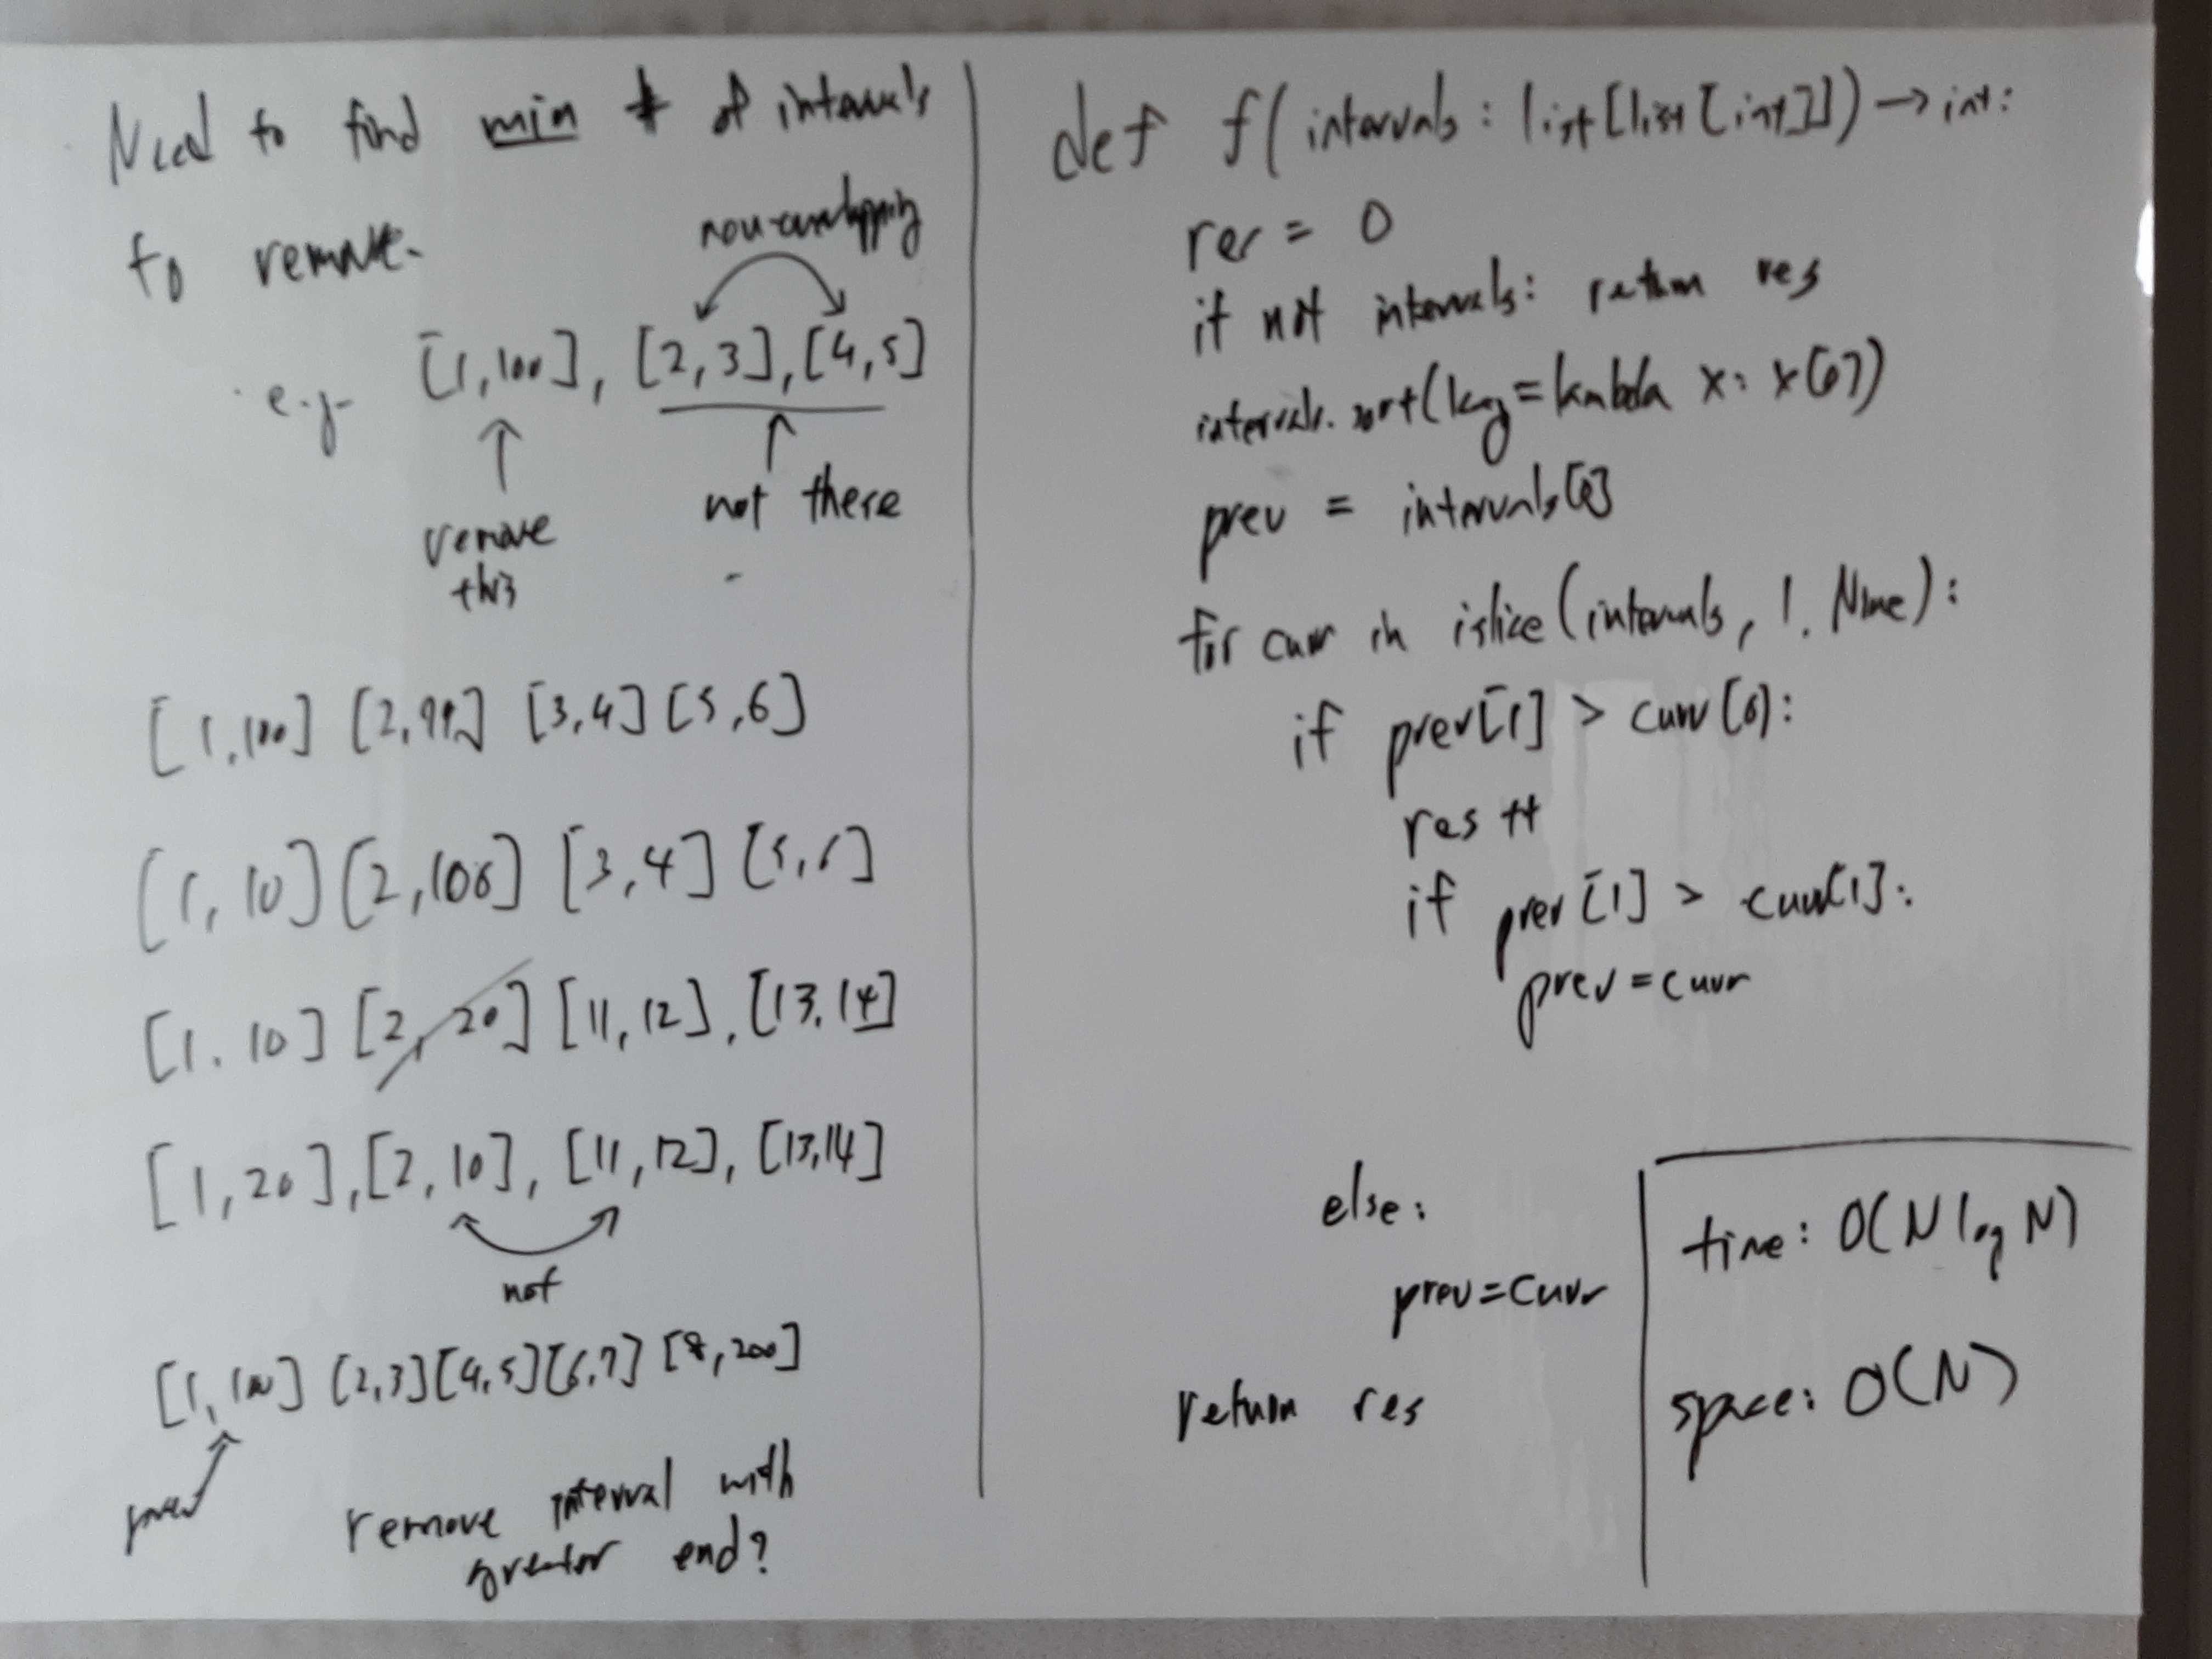 Need to find min # of intervals
to remove.
non-overlapping
e.g. [1,100], [2,3], [4,5]
remove
this
not these
[1,100] [2,99] [3,4] [5,6]
[1,10] [2,100] [3,4] [5,6]
[1,10] [2,20] [11,12], [13,14]
[1,20], [2,10], [11,12], [13,14]
not
[1,100] [2,3] [4,5] [6,7] [8,200]
prev
remove interval with
greater end?
def f(intervals: list[list[int]]) → int:
res = 0
if not intervals: return res
intervals.sort(key=lambda x: x[0])
prev = intervals[0]
for curr in islice(intervals, 1, None):
if prev[1] > curr[0]:
res ++
if prev[1] > curr[1]:
prev = curr
else:
prev = curr
return res
time: O(N log N)
space: O(N)